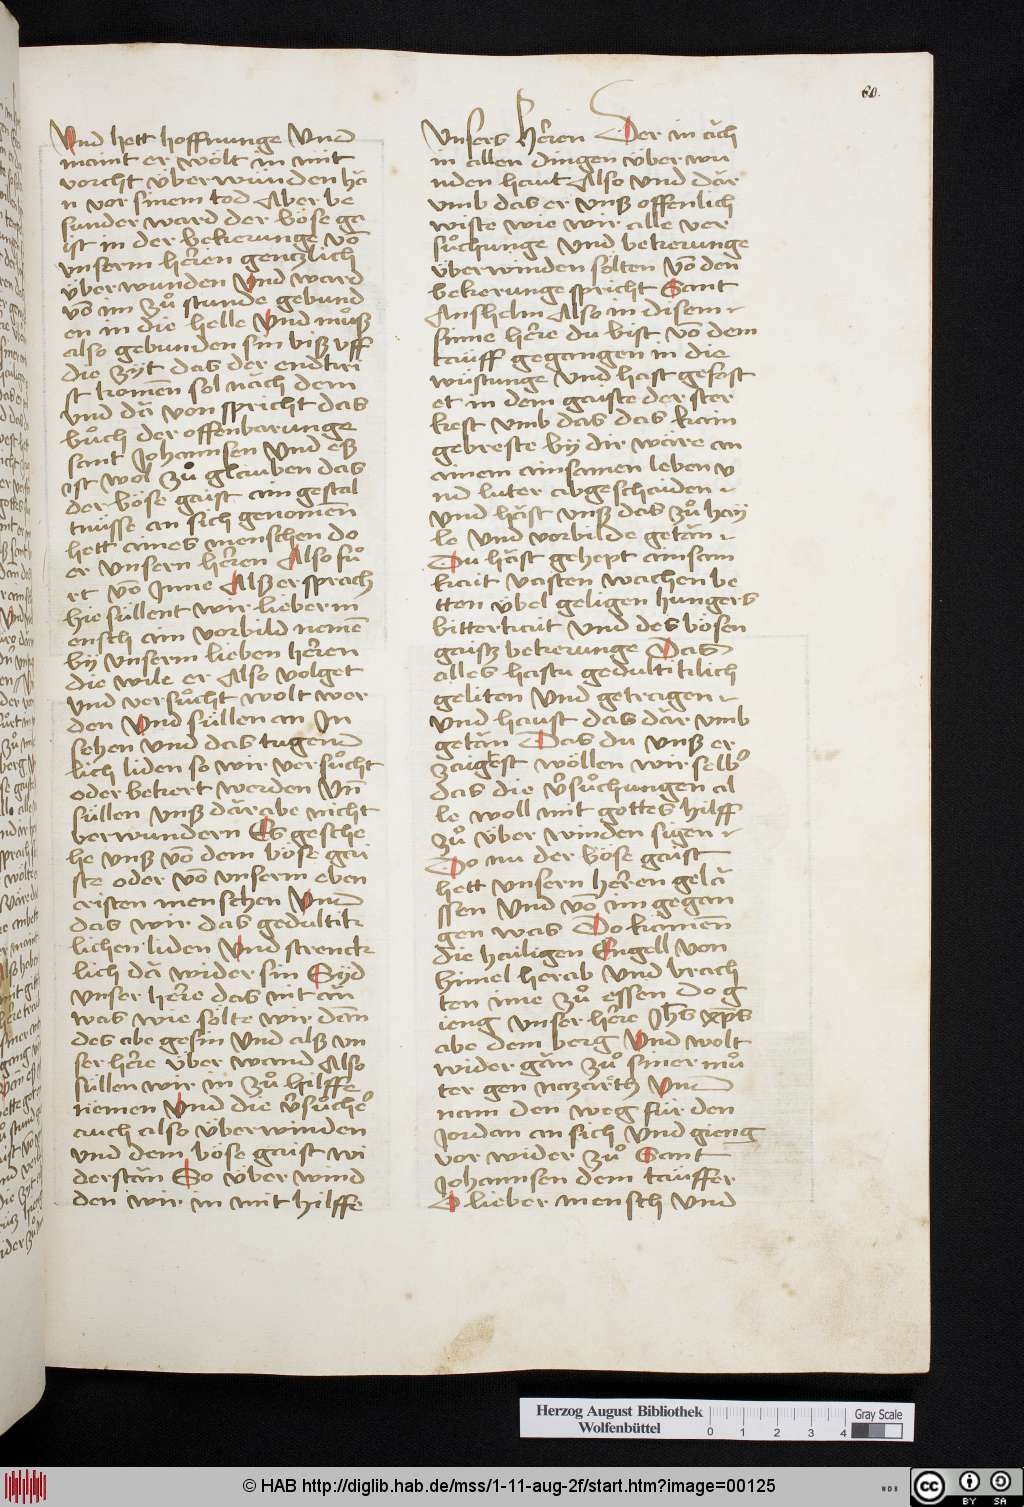 60.
Vnd hett hoffnunge Vnd
maint er wölt in mit
vorcht überwunden hā
n vor sinem tod Aber be
sunder ward der böse ga
ist in der bekerunge vō
vnserm herren gentzlich
überwunden Vnd ward
vō im zů stunde gebund
en in die helle Vnd můsz
also gebunden sin bisz vff
die zyt das der endtcri
st komen sol nāch dem
vnd dā von spricht das
bůch der offenbarunge
sant Johannsen Vnd esz
ist wol zů glauben das
der böse gaist ain gestal
tnüsse an sich genomen
hett aines menschen do
er vnsern herren Also fů
rt vō Jnne Alsz er sprach
hie süllent wir lieber m
ensch ain vorbild nemē
by vnserm lieben herren
die wile er Also volget
vnd versůcht wolt wer
den Vnd süllen an Jn
sehen vnd das tugend
lich liden so wir versůcht
oder bekert werden Vn̄
süllen vnsz dār abe nicht
verwundern Es gesche
he vnsz vō dem böse gai
ste oder vō vnserm eben
cristen menschen Vnd
das wir das gedultik
lichen liden Vnd strenck
lich dā wider sin Syd
vnser herre das nit ān
was wie sölte wir dān
des abe gesin Vnd alsz vn
ser herre über wand Also
süllen wir in zů hilffe
nemen Vnd die v̓sůchē
auch also überwinden
vnd dem böse gaist wi
derstān So über wind
den wir in mit hilffe
vnsers herren Der in āch
in allen dingen über wu
nden haut Also vnd dār
vmb das er vnsz offenlich
wiste wie wir alle ver
sůchunge vnd bekerunge
überwinden sölten Vō den
bekerunge spricht Sant
Anshelm Also in disem
sinne herre du bist vō dem
tauff gegangen in die
wüstunge Vnd hast gefast
et in dem gaiste der ster
kest vmb das das kain
gebreste by dir wäre an
ainem ainsamen leben v
nd luter abgeschaiden
Vnd hāst vnsz das zů hay
le Vnd vorbilde getān
Du hāst gehept ainsam
kait vasten wachen be
tten übel geligen hungers
bitterkait vnd des bösen
gaistz bekerunge Das
alles hastu gedultiklich
geliten Vnd getragen
Vnd haust das dār vmb
getān Das du vnsz er
zaigest wöllen wir selb
das die v̓sůchungen al
le woll mit gottes hilff
zů über winden sigen
Do nu der böse gaist
hett vnsern herren gelā
ssen Vnd vō im gegan
gen was Do kamen
die hailigen Engell von
himel herab Vnd brach
ten ime zů essen do g
ieng vnser herre Jhs xps
abe dem berg Vnd wolt
wider gān zů siner mů
ter gen nazarth Vnd
nam den weg für den
Jordan an sich Vnd gieng
vor wider zů Sant
Johannsen dem täuffer
O lieber mensch vnd
Herzog August Bibliothek
Wolfenbüttel
0 1 2 3 4
Gray Scale
© HAB http://diglib.hab.de/mss/1-11-aug-2f/start.htm?image=00125
WDB
cc BY SA